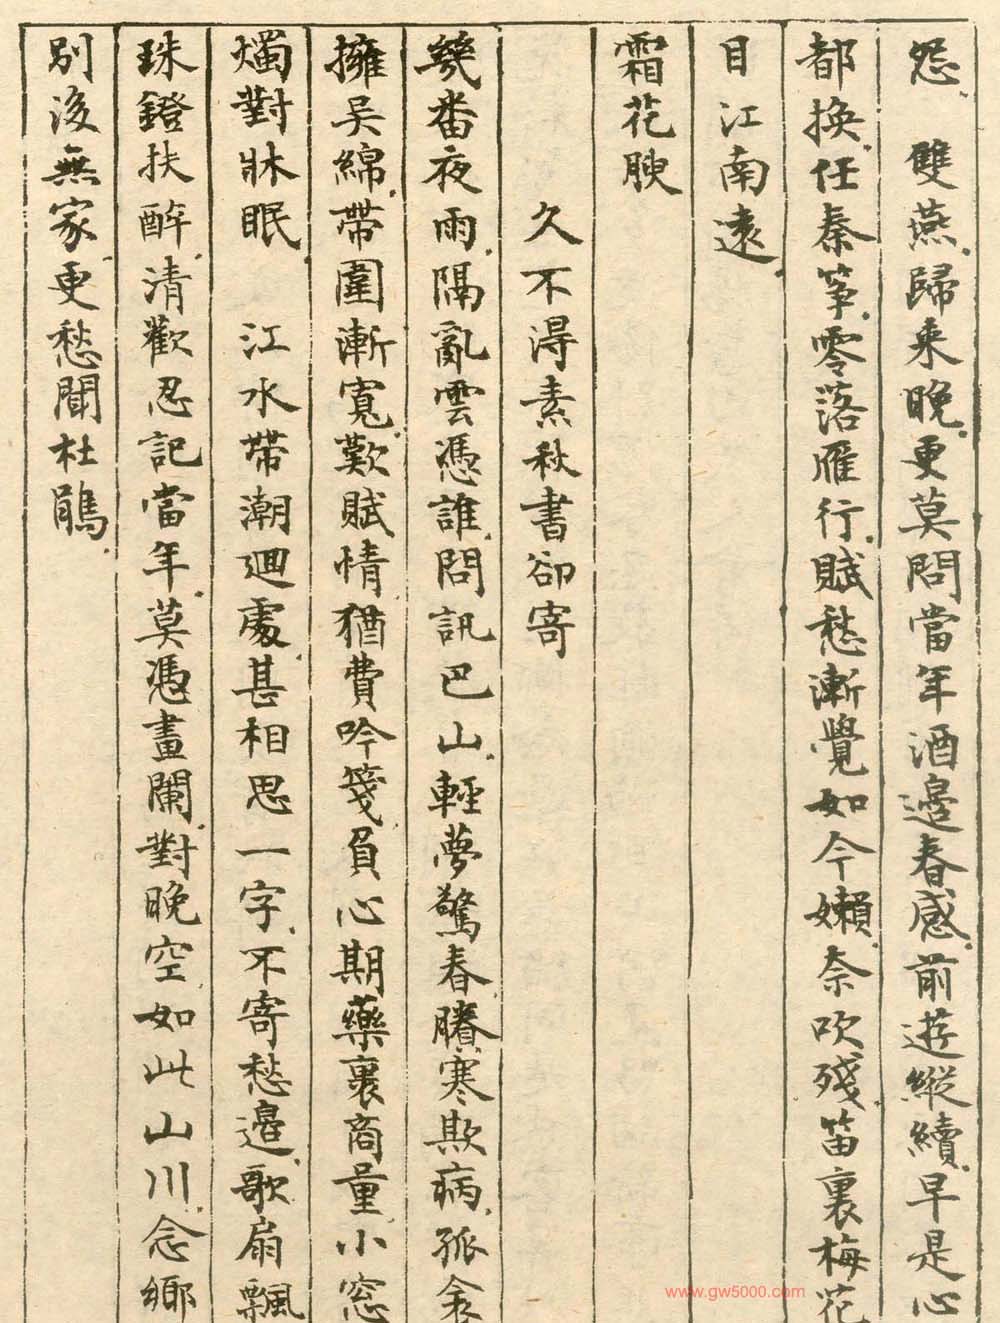 怨　雙燕歸來晚更莫問當年酒邊春感前遊縱續早是心
都換任秦筝零落雁行賦愁漸覺如今嬾奈吹殘笛裏梅花
目江南遠
霜花腴
久不得素秋書卻寄
幾番夜雨隔亂雲憑誰問訊巴山輕夢驚春賸寒欺病孤衾
擁吴綿帶圍漸寬歎賦情猶費吟箋負心期藥裹商量小窓
燭對牀眠　江水帶潮迴處甚相思一字不寄愁邊歌扇飄
珠鐙扶醉清歡忍記當年莫憑畫闌對晚空如此山川念鄉
別後無家更愁聞杜鵑
www.gw5000.com